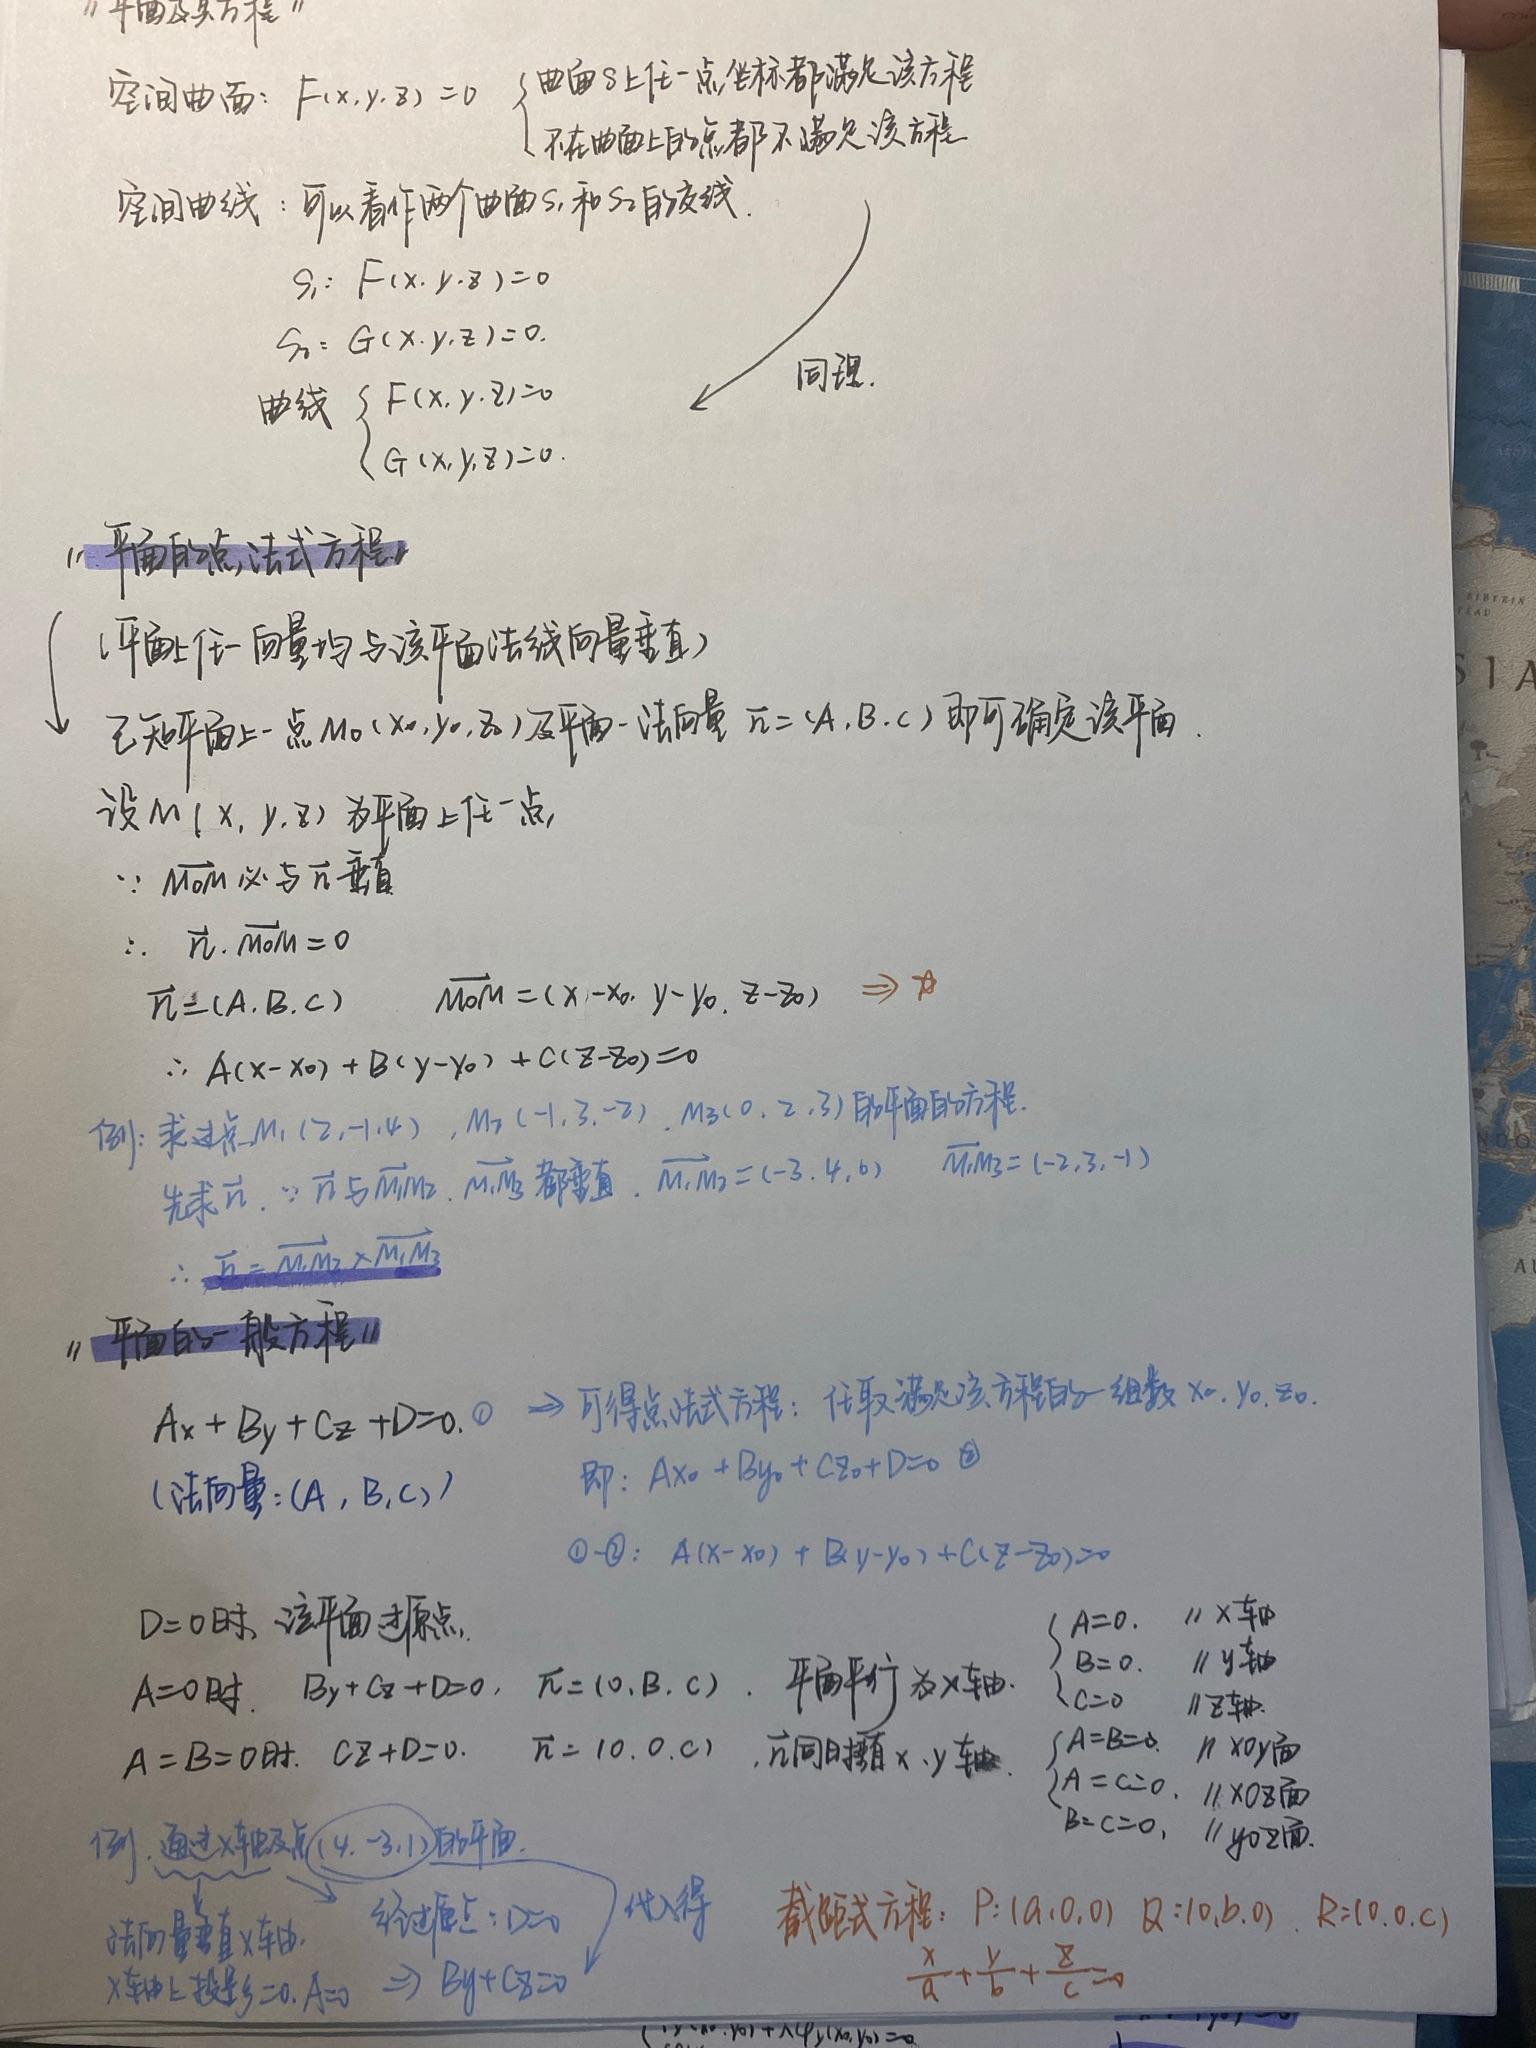 "平面及其方程"
空间曲面: F(x,y,z)=0 { 曲面S上任一点坐标都满足该方程
不在曲面上的点都不满足该方程
空间曲线: 可以看作两个曲面S₁和S₂的交线.
S₁: F(x,y,z)=0
S₂: G(x,y,z)=0.
同理.
曲线 { F(x,y,z)=0
G(x,y,z)=0.
"平面的点法式方程"
(平面上任一向量均与该平面法线向量垂直)
已知平面上一点M₀(x₀,y₀,z₀)及平面一法向量 n⃗=(A,B,C)即可确定该平面.
设M(x,y,z)为平面上任一点,
∵ M₀M⃗必与n⃗垂直
∴ n⃗·M₀M⃗=0
n⃗=(A,B,C) M₀M⃗=(x-x₀, y-y₀, z-z₀) ⇒ ☆
∴ A(x-x₀)+B(y-y₀)+C(z-z₀)=0
例: 求过点M₁(2,-1,4), M₂(-1,3,-2), M₃(0,2,3)的平面的方程.
先求n⃗, ∵ n⃗与M₁M₂⃗, M₁M₃⃗都垂直, M₁M₂⃗=(-3,4,6) M₁M₃⃗=(-2,3,-1)
∴ n⃗=M₁M₂⃗×M₁M₃⃗
"平面的一般方程"
Ax+By+Cz+D=0.① ⇒ 可得点法式方程: 任取满足该方程的一组数x₀,y₀,z₀.
(法向量:(A,B,C)) 即: Ax₀+By₀+Cz₀+D=0 ②
①-②: A(x-x₀)+B(y-y₀)+C(z-z₀)=0
D=0时, 该平面过原点.
A=0时, By+Cz+D=0, n⃗=(0,B,C), 平面平行为x轴.
A=B=0时, Cz+D=0. n⃗=(0,0,C), n⃗同时垂直x、y轴.
{ A=0. // x轴
B=0. // y轴
C=0 // z轴.
{ A=B=0. // xOy面
A=C=0. // xOz面
B=C=0, // yOz面.
例. 通过x轴及点(4,-3,1)的平面.
法向量垂直x轴. 经过原点: D=0 代入得
x轴上投影=0. A=0 ⇒ By+Cz=0
截距式方程: P:(a,0,0) Q:(0,b,0), R=(0,0,c)
x/a+y/b+z/c=0